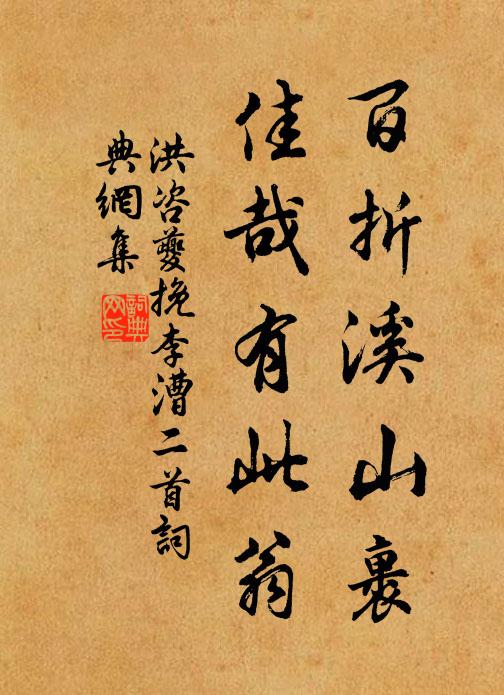 百折溪山裏
佳哉有此翁
洪咨夔挽李漕二首詞
典網集
詞典網印